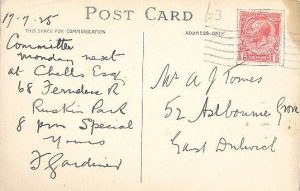 19.7.25
POST CARD
63
THIS SPACE FOR COMMUNICATION
ADDRESS ONLY
Committee
Monday next
at Chells Esq
68 Ferndene R
Ruskin Park
8 pm Special
Yours
F Gardiner
Mr A J Tomes
52 Ashbourne Grove
East Dulwich